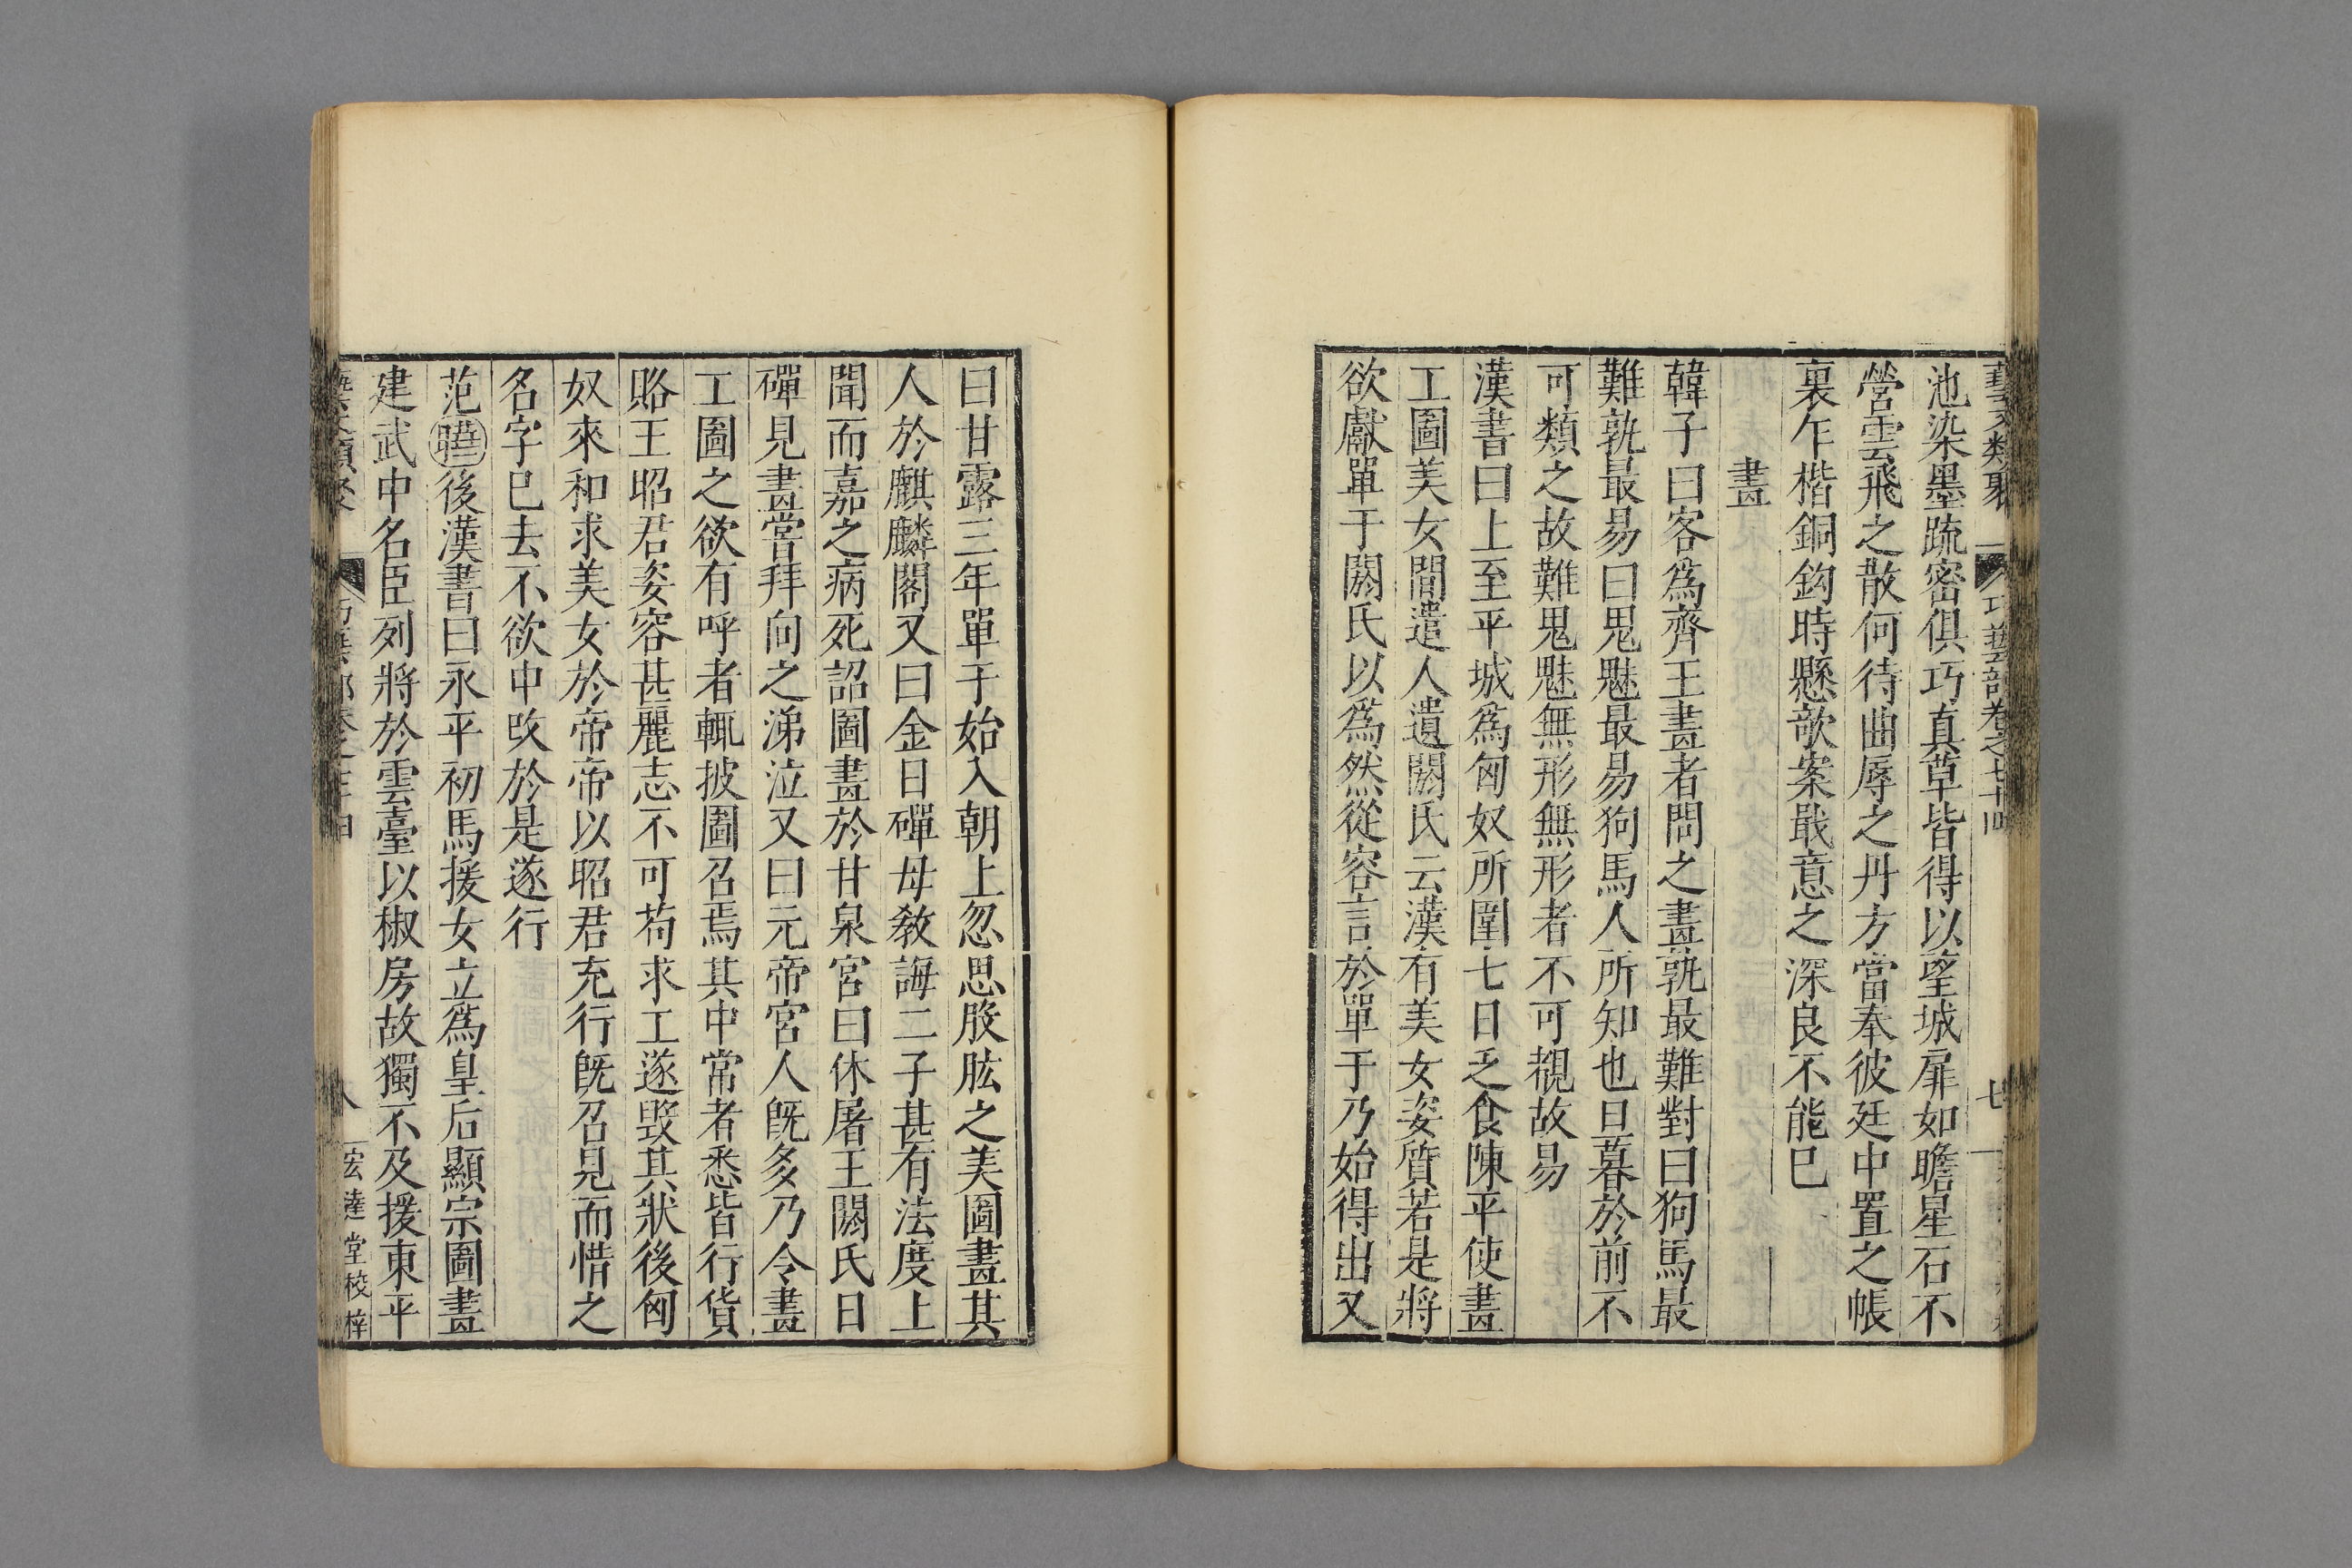 藝文類聚 巧藝部卷之七十四 七
池染墨疏密俱巧真草皆得以望城扉如瞻星石不
營雲飛之散何待曲辱之丹方當奉彼廷中置之帳
裏乍楷銅鈎時懸欹案戢意之深良不能巳
畫
韓子曰客爲齊王畫者問之畫孰最難對曰狗馬最
難孰最易曰鬼魅最易狗馬人所知也旦暮於前不
可類之故難鬼魅無形無形者不可覩故易
漢書曰上至平城爲匈奴所圍七日乏食陳平使畫
工圖美女間遣人遺閼氏云漢有美女姿質若是將
欲獻單于閼氏以爲然從容言於單于乃始得出又
曰甘露三年單于始入朝上忽思股肱之美圖畫其
人於麒麟閣又曰金日磾母教誨二子甚有法度上
聞而嘉之病死詔圖畫於甘泉宮曰休屠王閼氏日
磾見畫嘗拜向之涕泣又曰元帝宮人既多乃令畫
工圖之欲有呼者輒披圖召焉其中常者悉皆行貨
賂王昭君姿容甚麗志不可苟求工遂毁其狀後匈
奴來和求美女於帝帝以昭君充行既召見而惜之
名字巳去不欲中改於是遂行
范曄後漢書曰永平初馬援女立爲皇后顯宗圖畫
建武中名臣列將於雲臺以椒房故獨不及援東平
八 宏達堂校梓